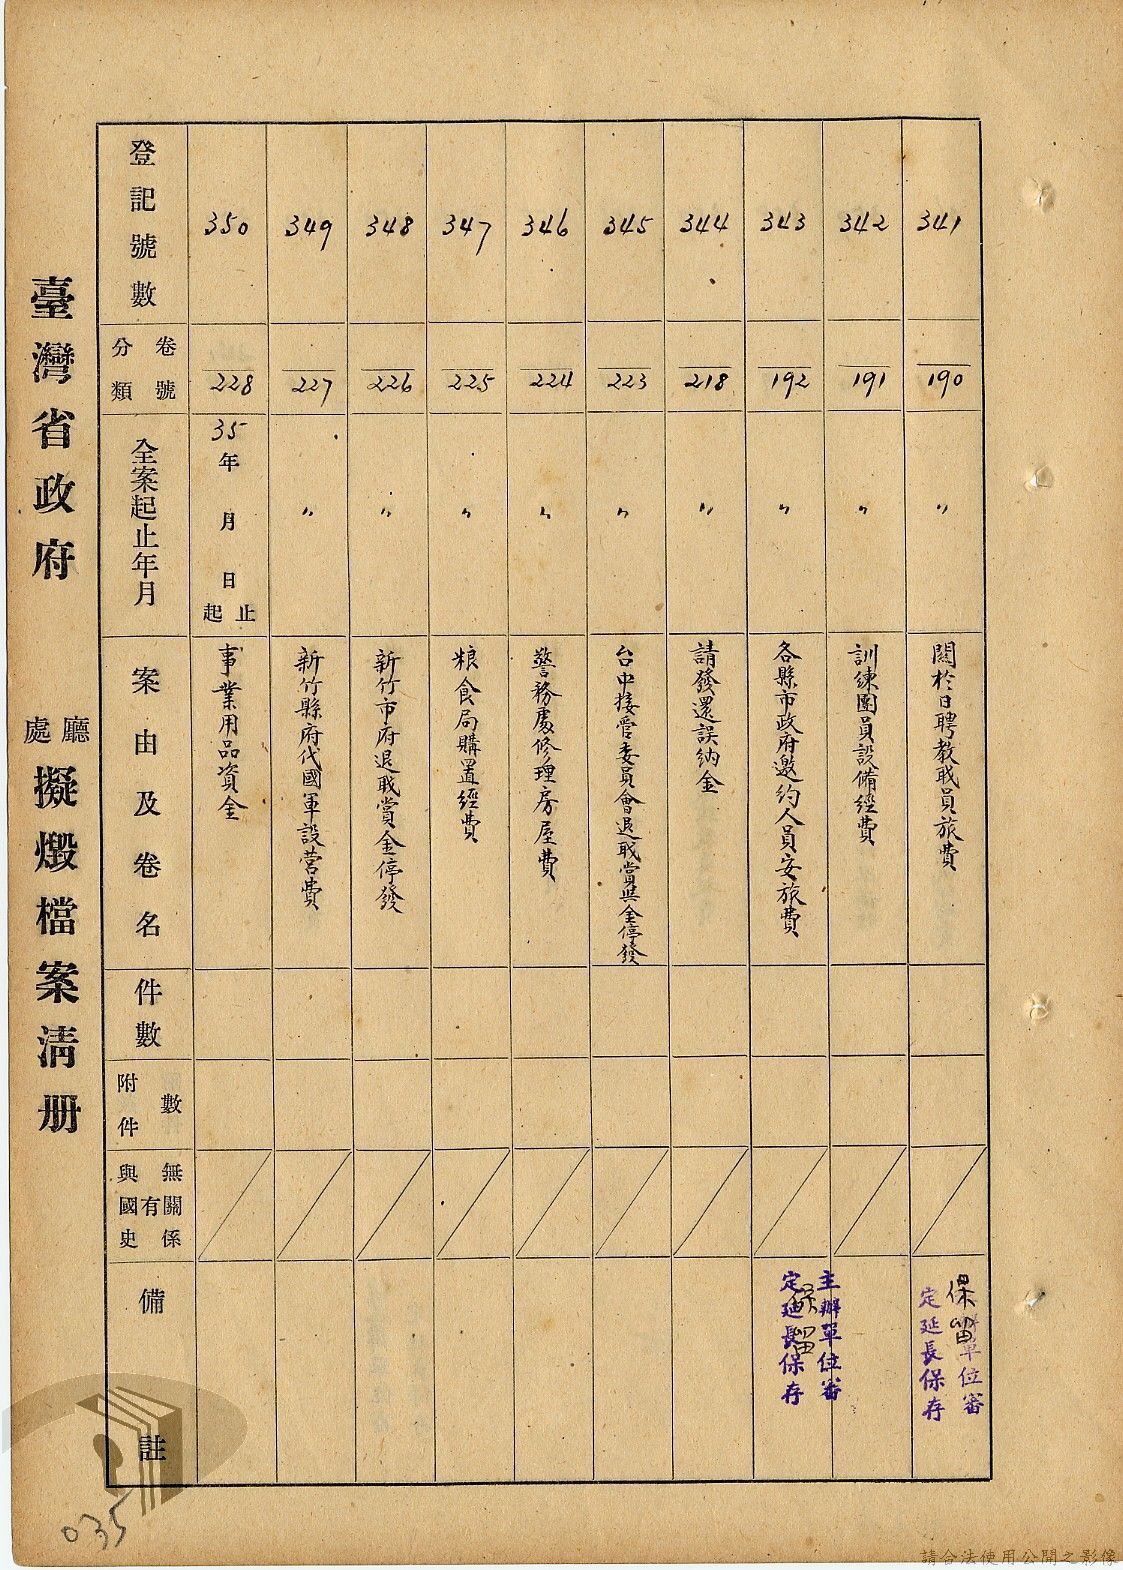 臺灣省政府 廳處擬燬檔案清册
登記號數
分類 卷號
全案起止年月
案由及卷名
件數
附件 數
與國史 有 無關係
備註
341
190
〃
關於日聘教職員旅費
保留
辦單位審
定延長保存
342
191
〃
訓練團員設備經費
343
192
〃
各縣市政府邀約人員安旅費
主辦單位審
定延長保存
保留
344
218
〃
請發還誤納金
345
223
〃
台中接管委員會退職賞與金停發
346
224
〃
警務處修理房屋費
347
225
〃
粮食局購置經費
348
226
〃
新竹市府退職賞金停發
349
227
〃
新竹縣府代國軍設營費
350
228
35年 月 日 起止
事業用品資金
035
請合法使用公開之影像